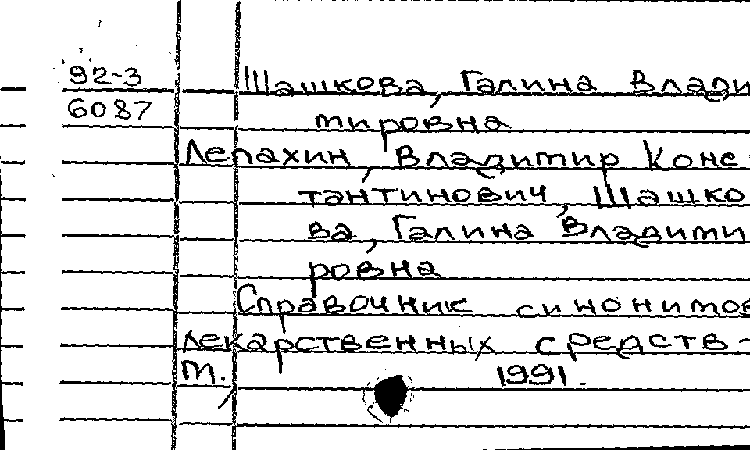 92-3
6087
Шашкова, Галина Влади
мировна
Лепахин, Владимир Конс-
тантинович, Шашко
ва, Галина Владими
ровна
Справочник синонимов
лекарственных средств -
М., 1991.